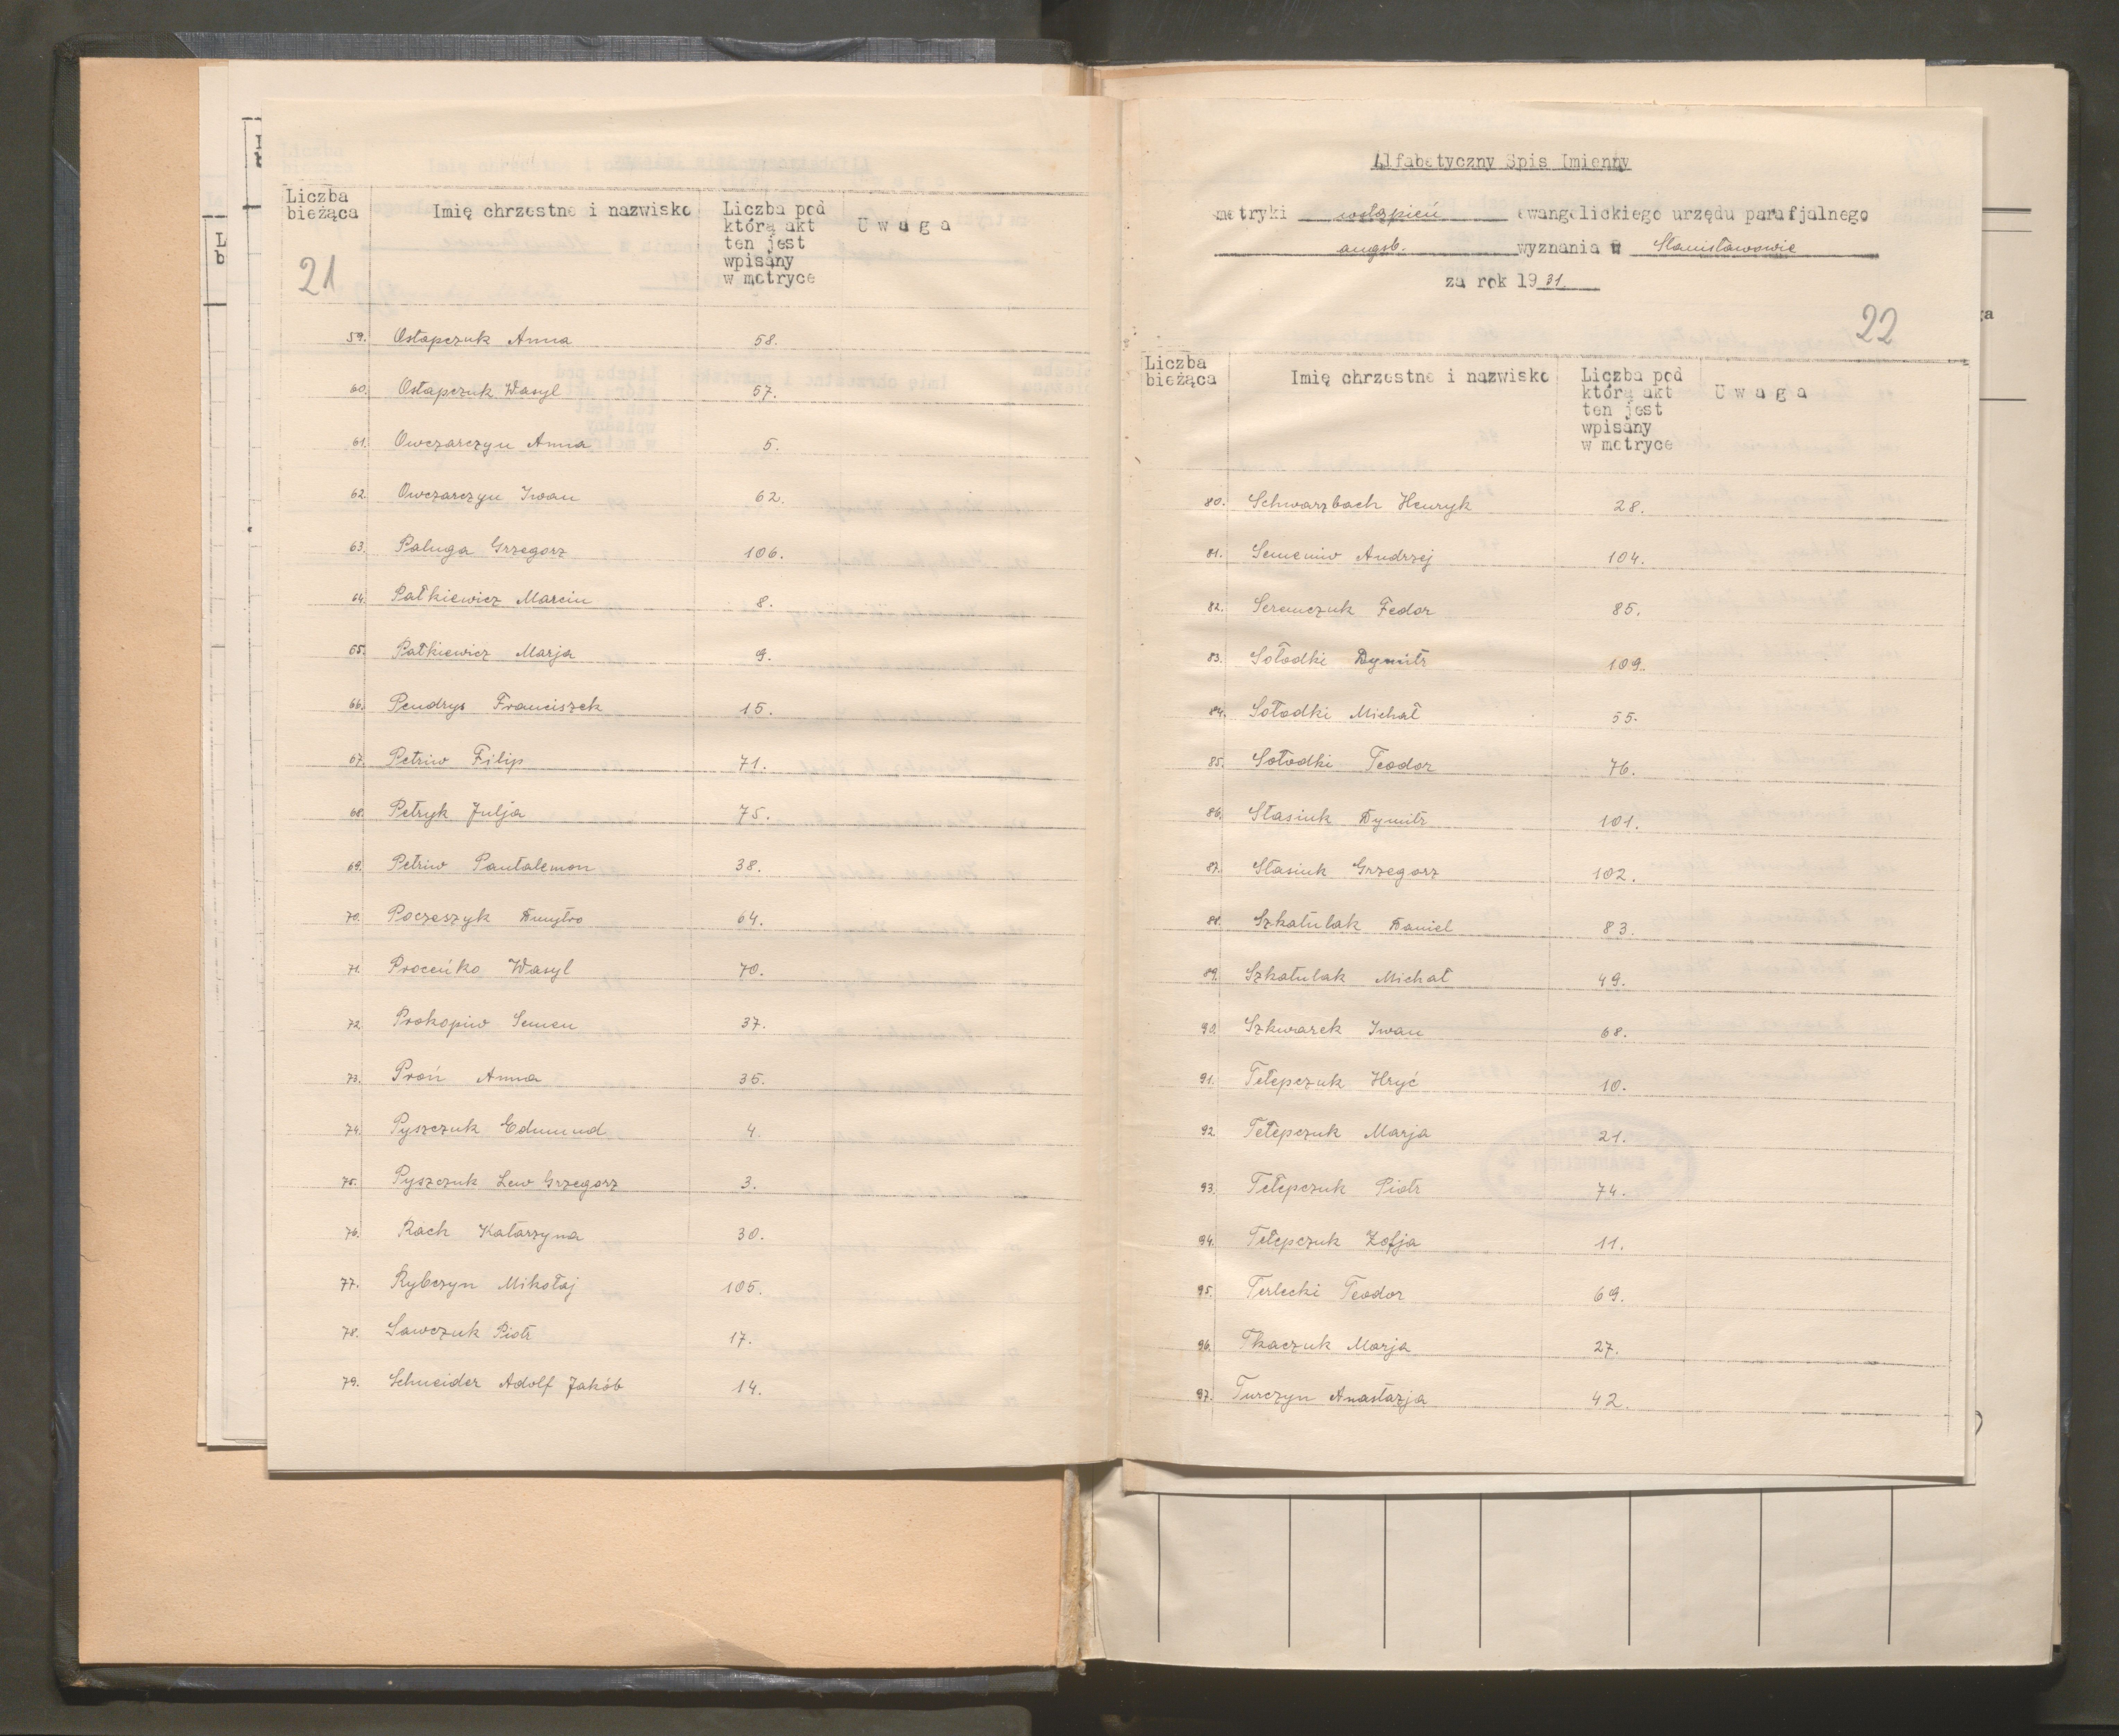 Liczba
bieżąca
Imię chrzestne i nazwisko
Liczba pod
którą akt
ten jest
wpisany
w metryce
Uwaga
21
59. Ostapczuk Anna 58.
60. Ostapczuk Wasyl 57.
61. Owczarczyn Anna 5.
62. Owczarczyn Iwan 62.
63. Paluga Grzegorz 106.
64. Pałkiewicz Marcin 8.
65. Pałkiewicz Marja 9.
66. Pendrys Franciszek 15.
67. Petriw Filip 71.
68. Petryk Julja 75.
69. Petriw Pantalemon 38.
70. Poczeszyk Dmytro 64.
71. Proceńko Wasyl 70.
72. Prokopiw Semen 37.
73. Proń Anna 35.
74. Pyszczuk Edmund 4.
75. Pyszczuk Lew Grzegorz 3.
76. Rach Katarzyna 30.
77. Rybczyn Mikołaj 105.
78. Sawczuk Piotr 17.
79. Schneider Adolf Jakób 14.
Alfabetyczny Spis Imienny
metryki wstąpień ewangelickiego urzędu parafjalnego
augsb. wyznania w Stanisławowie
za rok 1931.
22
Liczba
bieżąca
Imię chrzestne i nazwisko
Liczba pod
którą akt
ten jest
wpisany
w metryce
Uwaga
80. Schwarzbach Henryk 28.
81. Semeniw Andrzej 104.
82. Seremczuk Fedor 85.
83. Sołodki Dymitr 109.
84. Sołodki Michał 55.
85. Sołodki Teodor 76.
86. Stasiuk Dymitr 101.
87. Stasiuk Grzegorz 102.
88. Szkatulak Daniel 83.
89. Szkatulak Michał 49.
90. Szkwarek Iwan 68.
91. Tełepczuk Hryć 10.
92. Tełepczuk Marja 21.
93. Tełepczuk Piotr 74.
94. Tełepczuk Zofja 11.
95. Terlecki Teodor 69.
96. Tkaczuk Marja 27.
97. Turczyn Anastazja 42.